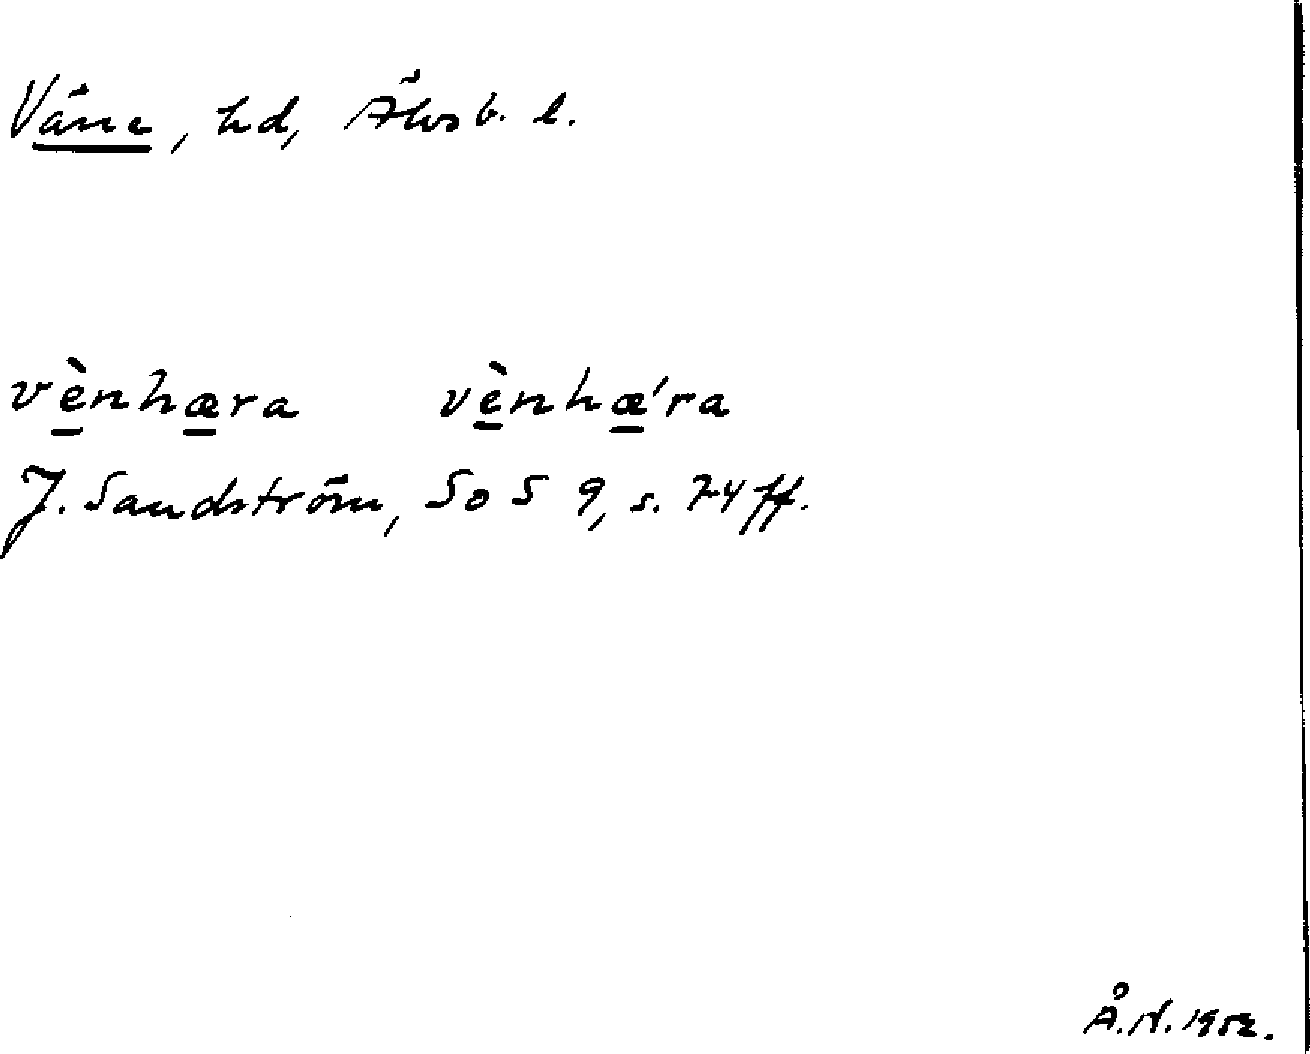 Väne, hd, Älvsb. l.
vènhæra vènhæ'ra
J. Sandström, SoS 9, s. 74 ff.
Å.N. 1952.